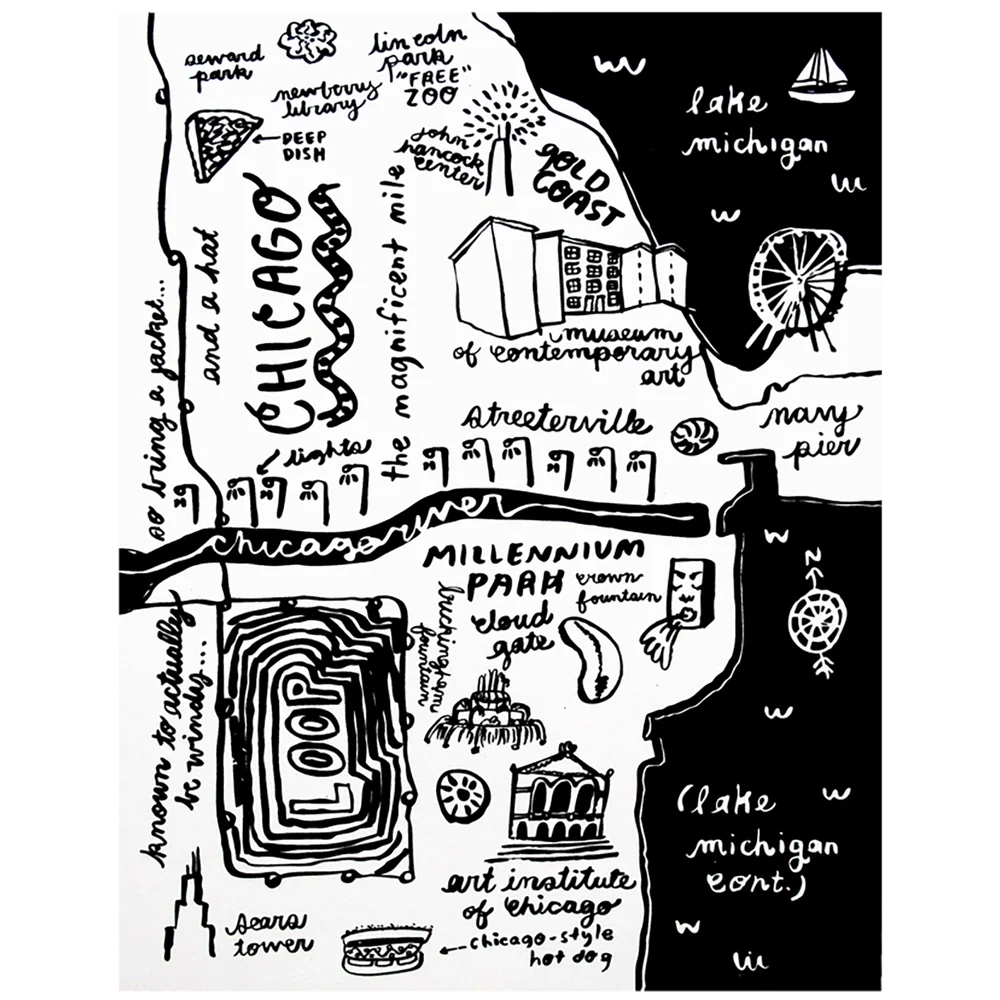 seward
park
lincoln
park
"FREE"
ZOO
newberry
library
DEEP
DISH
john
hancock
center
GOLD
COAST
lake
michigan
CHICAGO
the magnificent mile
and a hat
so bring a jacket...
museum
of contemporary
art
streeterville
navy
pier
lights
chicago river
MILLENNIUM
PARK
crown
fountain
cloud
gate
buckingham
fountain
N
LOOP
known to actually
be windy...
(lake
michigan
cont.)
art institute
of chicago
sears
tower
chicago-style
hot dog